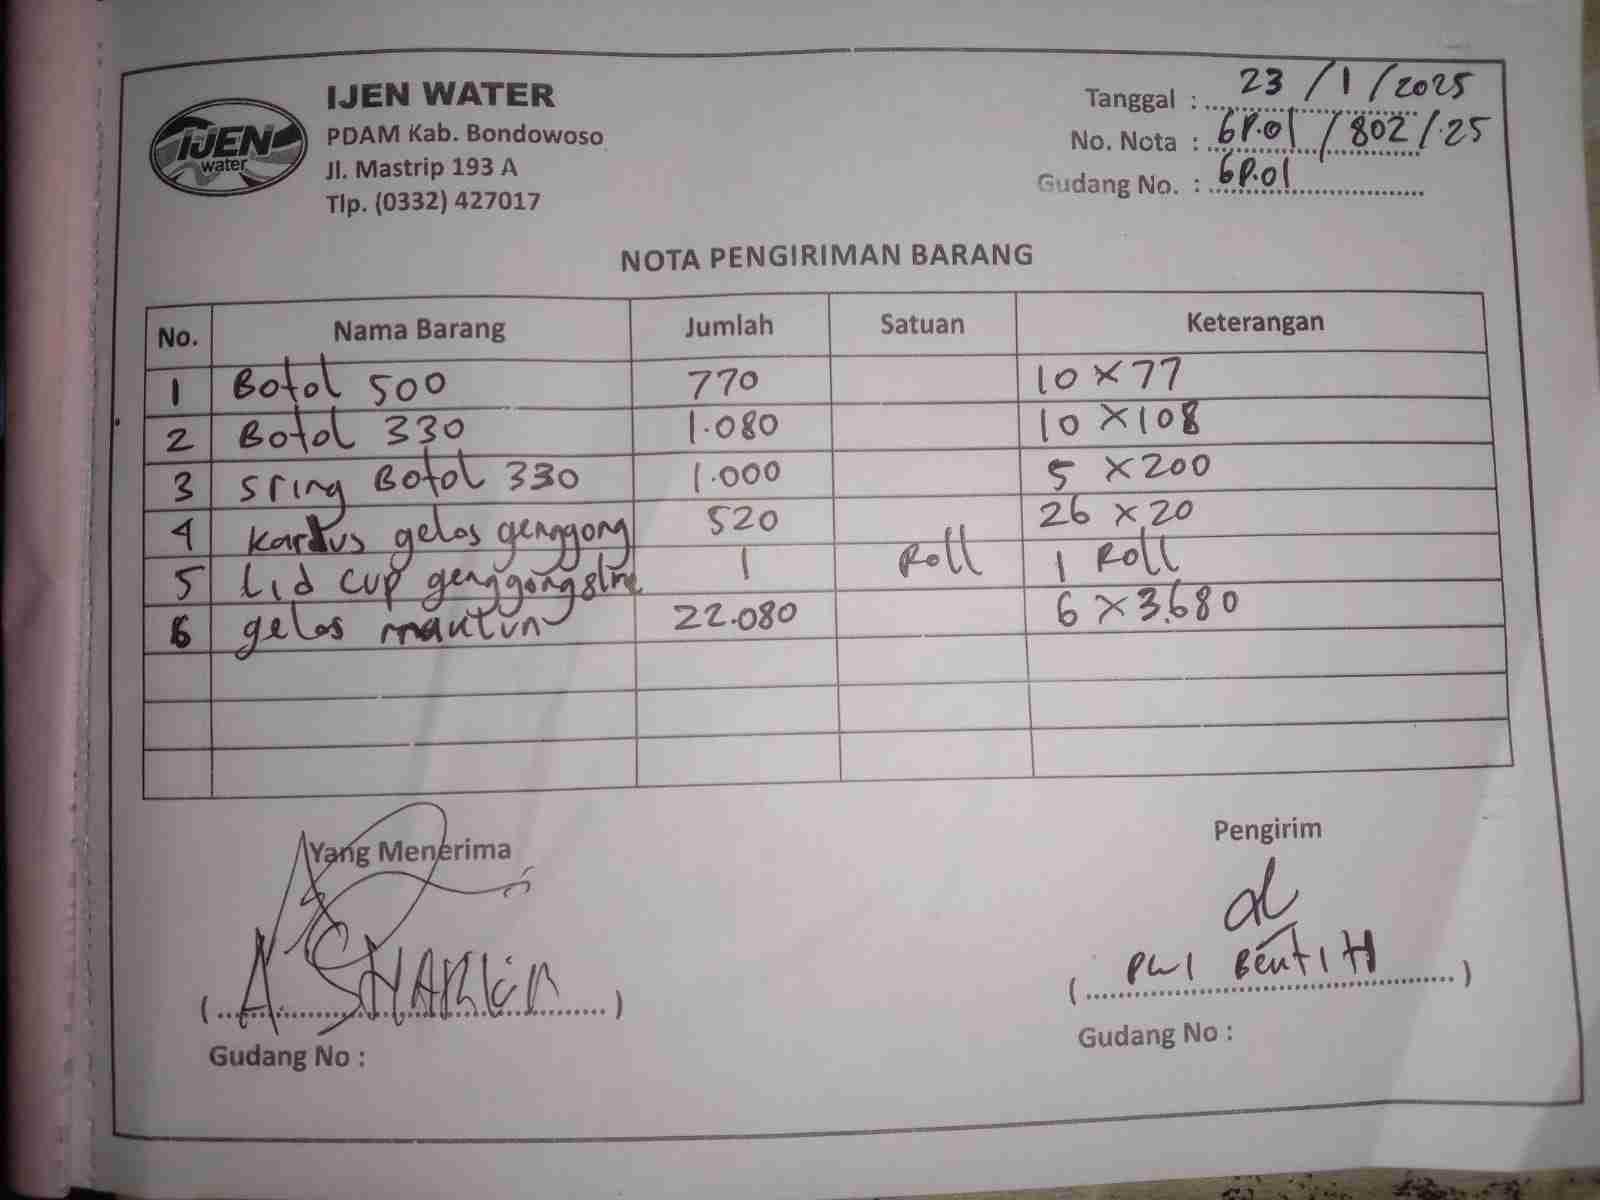 IJEN
water
IJEN WATER
PDAM Kab. Bondowoso
Jl. Mastrip 193 A
Tlp. (0332) 427017
Tanggal : 23 / 1 / 2025
No. Nota : 6P.01 / 802 / 25
Gudang No. : 6P.01
NOTA PENGIRIMAN BARANG
No. Nama Barang Jumlah Satuan Keterangan
1 Botol 500 770 10 x 77
2 Botol 330 1.080 10 x 108
3 Sring Botol 330 1.000 5 x 200
4 Kardus gelas genggong 520 26 x 20
5 Lid cup genggong 1 Roll 1 Roll
6 gelas 22.080 6 x 3.680
Yang Menerima
Pengirim
( A. )
( DWI )
Gudang No :
Gudang No :